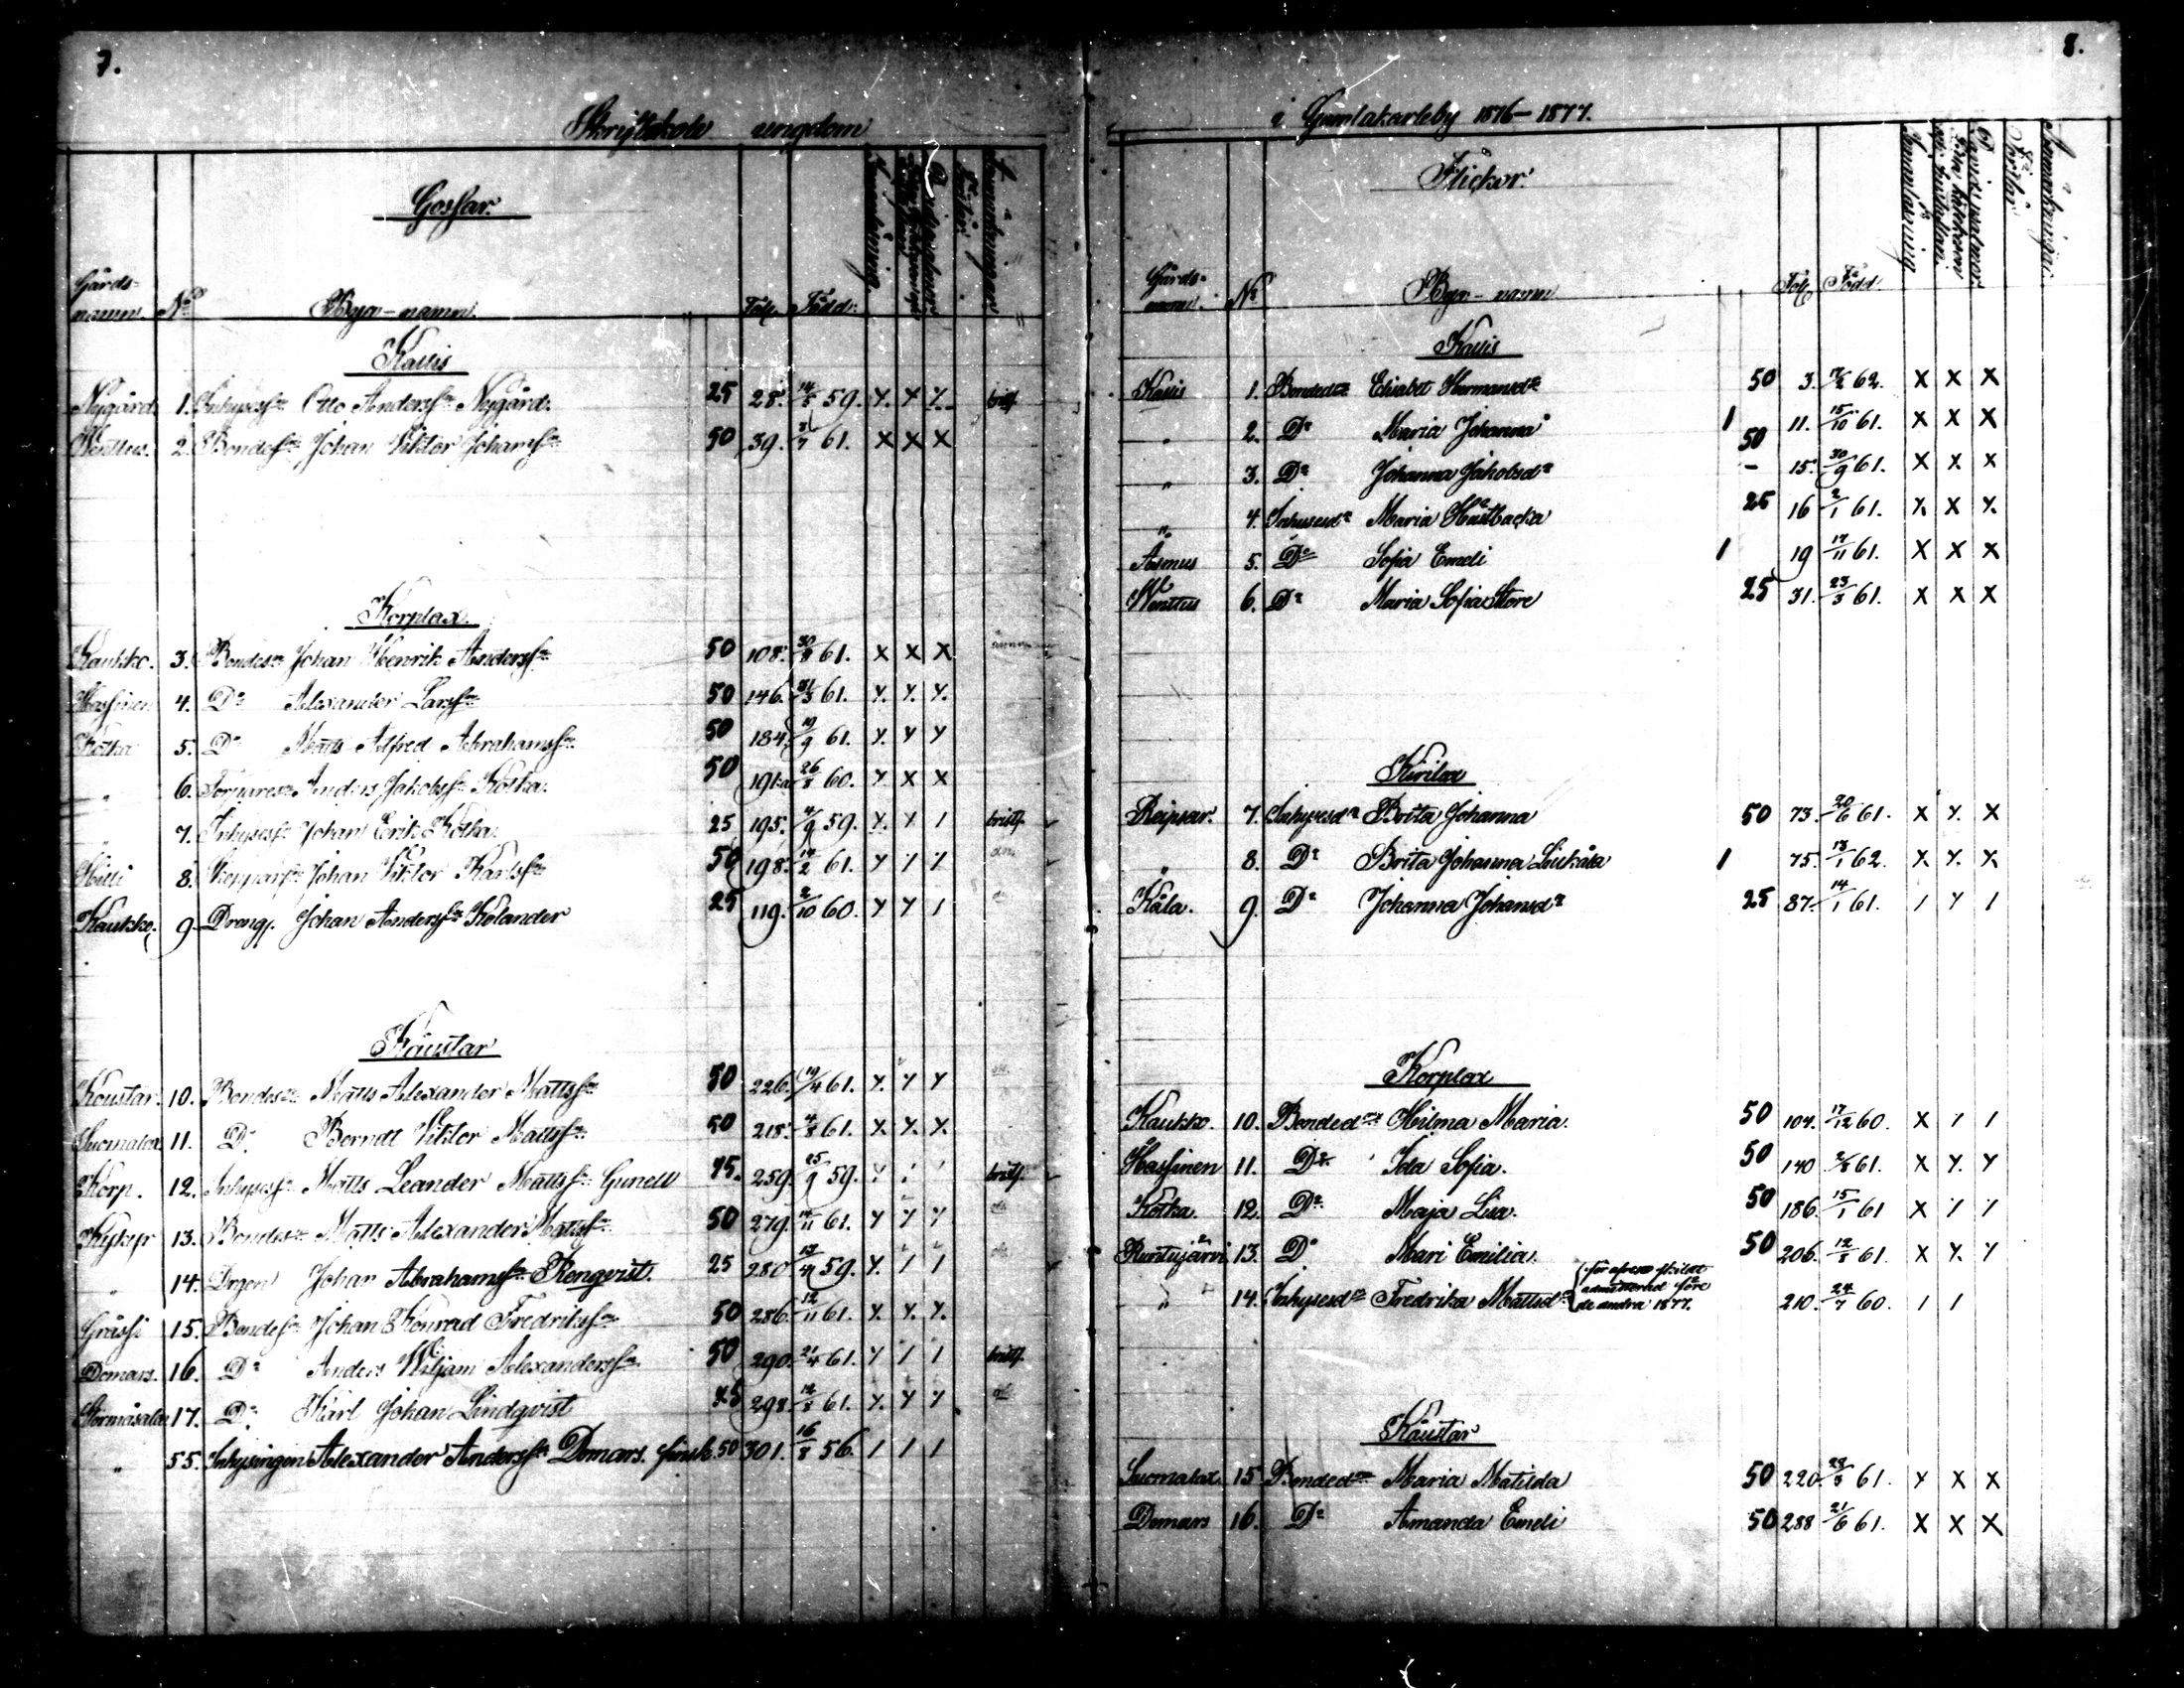 7.
Skriftskole ungdom
Gossar.
Gårds-namn. No Bya-namn. Fol. Född. Innanläsning. Anmärkningar
Kallis
Nygård 1. Inhysess:n Otto Anderss:n Nygård. 25 28. 14/5 59. x. x x. brist.
Wenttus. 2. Bondes:n Johan Viktor Johans:n 50 39. 3/7 61. x x x
Korplax.
Kaukko. 3. Bondes:n Johan Henrik Anderss:n 50 108. 30/8 61. x x x
Hassinen 4. D:o Alexander Larss:n 50 146. 31/3 61. x. x. x.
Kotka 5. D:o Matts Alfred Abrahamss:n 50 184. 19/9 61. x. x x
" 6. Torpares:n Anders Jakobss:n Kotka. 50 191.a 26/8 60. x x x
" 7. Inhysess:n Johan Erik Kotka. 25 195. 4/9 59. x. x 1 brist.
8. Johan Viktor Karlss:n 50 198. 14/2 61. x / /
Kaukko. 9. Dreng. Johan Anderss:n Kolander 25 119. 2/10 60. x x 1
Kaustar
Kaustar. 10. Bondes:n Matts Alexander Mattss:n 50 226. 19/4 61. x. x x
Suomalax 11. D:o Berndt Viktor Mattss:n 50 218. 4/8 61. x. x. x.
Korp. 12. Inhysess:n Matts Leander Mattss:n Gunell 75. 259. 25/9 59. brist.
Kykyr 13. Bondes:n Matts Alexander Mattss:n 50 279. 14/11 61. x x x
" 14. Drgen Johan Abrahamss:n Rengvist. 25 280 13/4 59. x. 1 1
Grässi 15. Bondes:n Johan Konrad Fredrikss:n 50 286. 12/11 61. x. x. x.
Domars. 16. D:o Anders Wiljam Alexanderss:n 50 290. 21/4 61. x 1 1 brist.
17. D:o Karl Johan Lindqvist 75 298. 12/8 61. x. x x
" 55. Inhysingen Alexander Anderss:n Domars. finsk. 50 301. 16/8 56. 1 1 1
8.
i Gamlakarleby 1876-1877.
Flickor.
Gårds-namn. No Bya-namn Fol. Född. Innanläsning Anmärkningar.
Kallis
Kallis 1. Bondedr Elisabet Hermansdr 50 3. 17/2 62. x x x
" 2. D:o Maria Johanna 1 11. 15/10 61. x x x
" 3. D:o Johanna Jakobsdr 50 - 15. 30/9 61. x x x
" 4. Inhysesdr Maria Hästbacka 25 16 2/1 61. x x x.
Asmus 5. D:o Sofia Emeli 1 19 17/11 61. x x x
Wenttus 6. D:o Maria Sofia Store 25 31. 23/3 61. x x x
Kirilax
Reipsar. 7. Inhysesdr Brita Johanna 50 73. 20/6 61. x x. x
" 8. D:o Brita Johanna Liukala 1 75. 13/1 62. x x. x
Kåla. 9. D:o Johanna Johansdr 25 87. 14/1 61. 1 x 1
Korplax
Kaukko. 10. Bondedr Hilma Maria. 50 104. 17/12 60. x / 1
Hassinen 11. D:o Ida Sofia. 50 140 2/8 61. x x. x
Kotka. 12. D:o Maja Lisa. 50 186. 15/1 61 x / /
Runtujärvi 13. D:o Mari Emilia. 50 206. 12/8 61. x x. x
" 14. Inhysesdr Fredrika Mattsdr (för skildt admitterad före de andra 1877. 210. 24/7 60. 1 1
Kaustar
Suomalax. 15 Bondedr Maria Matilda 50 220. 28/3 61. x x x
Domars 16. D:o Amanda Emeli 50 288 21/6 61. x x x